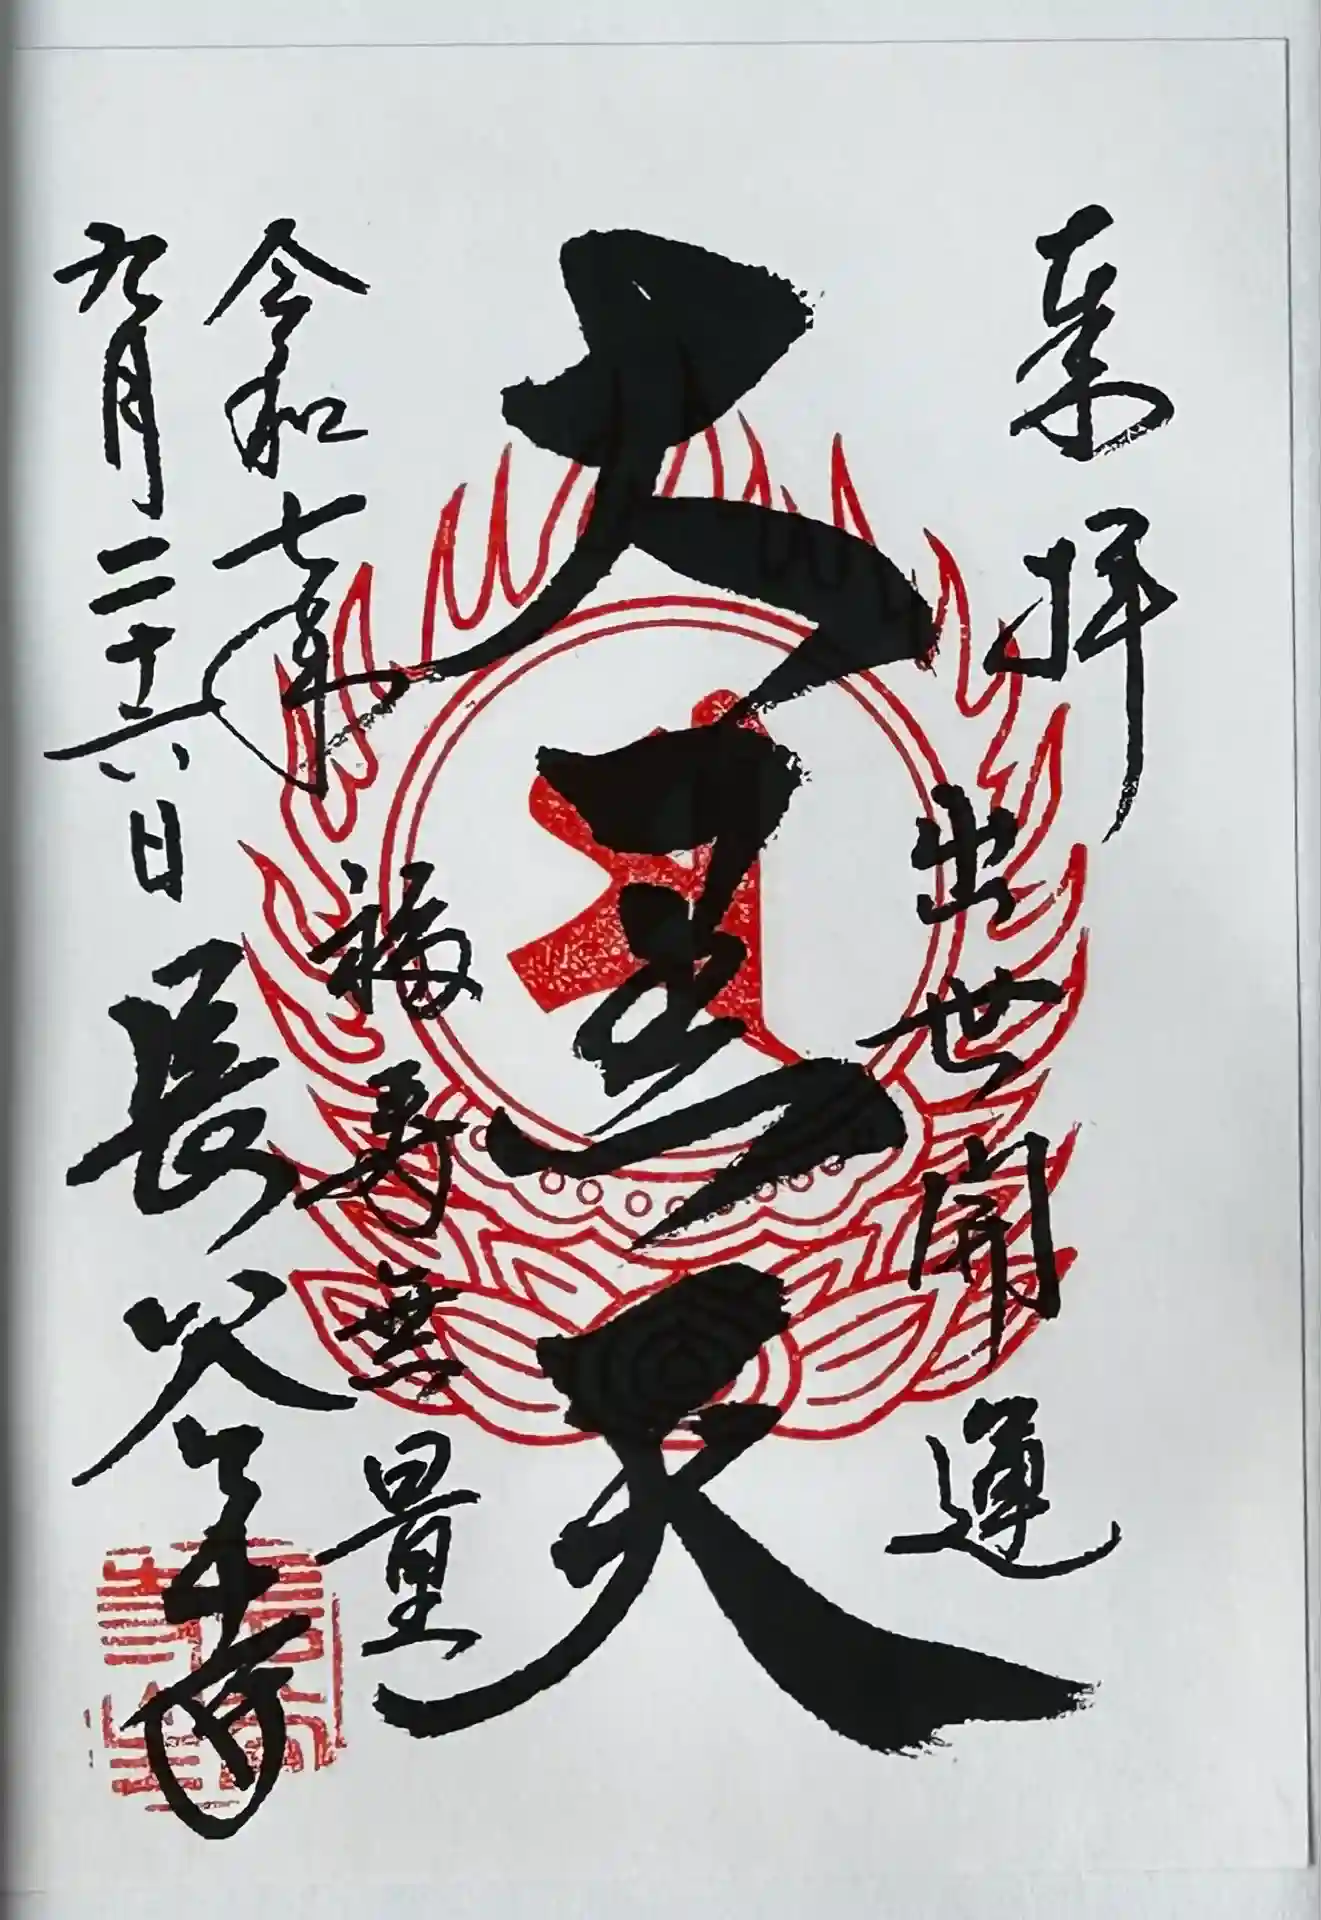 奉拝
出世開運
大黒天
福寿無量
令和七年
九月二十六日
長谷寺